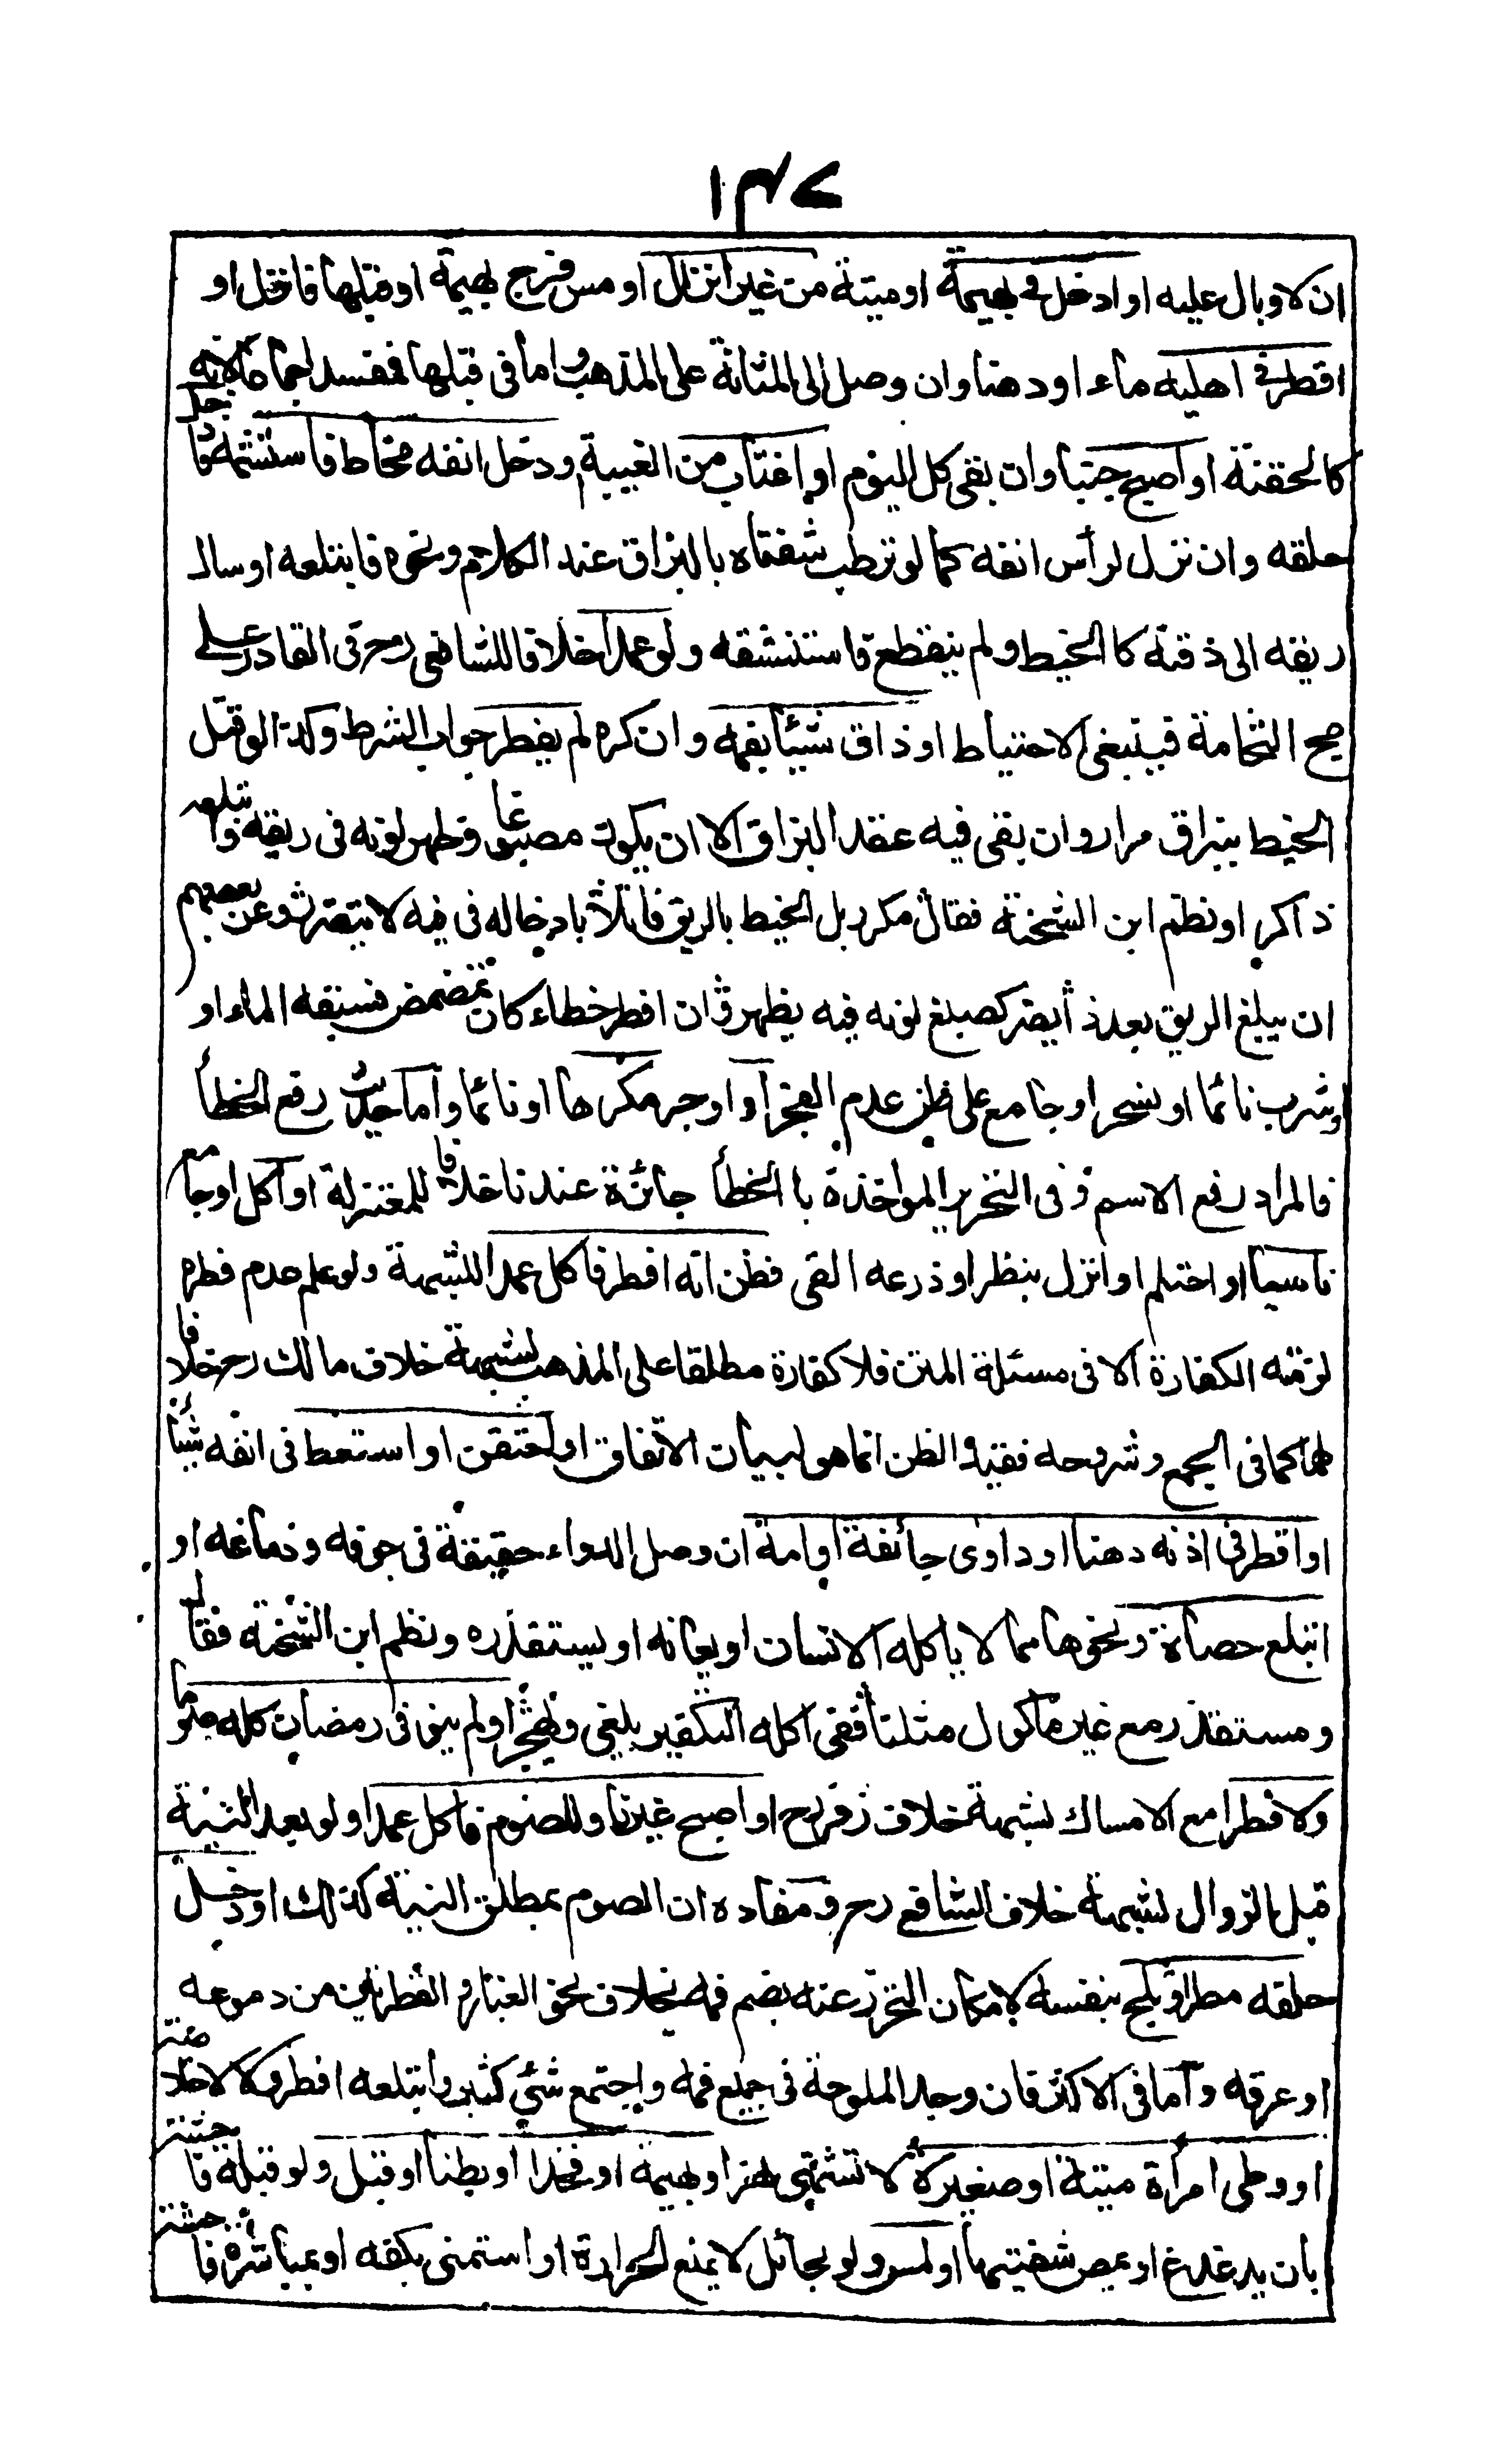 ١٣٧
ان لا وبال عليه او ادخل فى بهيمة او ميتة من غير انزال او مس فرج بهيمة او قبلها فانزل او
اقطر فى احليله ماء او دهنا وان وصل الى المثانة على المذهب واما فى قبلها فمفسد اجماعا لانه
كالحقنة او اصبح جنبا وان بقى كل اليوم او اغتاب من الغيبة او دخل انفه مخاط فاستشمه فادخل
حلقه وان نزل لرأس انفه كما لو ترطب شفتاه بالبزاق عند الكلام ونحوه فابتلعه او سال
ريقه الى ذقنه كا الخيط ولم ينقطع فاستنشقه ولو عمدا خلافا للشافعى رح فى القادر على
مج النخامة فينبغى الاحتياط او ذاق شيئا بفمه وان كره لم يفطر جواب الشرط وكذا لو فتل
الخيط ببزاق مرارا وان بقى فيه عقد البزاق الا ان يكون مصبوغا وظهر لونه فى ريقه وابتلعه
ذاكرا ونظم ابن الشحنة فقال مكرر بل الخيط بالريق فاتلا بادخاله فى فيه لا يتضرر وعن بعضهم
ان يبلع الريق بعد ذا يضر كصبغ لونه فيه يظهر وان افطر خطاء كان تمضمض فسبقه الماء او
شرب نائما او تسحر او جامع على ظن عدم الفجر او اوجر مكرها او نائما واما حديث رفع الخطأ
فالمراد رفع الاسم وفى التحرير المواخذة با الخطأ جائزة عندنا خلافا للمعتزلة او اكل او جامع
ناسيا او احتلم او انزل بنظر او ذرعه القى فظن انه افطر فاكل عمدا للشبهة ولو علم عدم فطره
لزمته الكفارة الا فى مسئلة المتن فلا كفارة مطلقا على المذهب لشبهة خلاف مالك رح خلافا
لهما كما فى المجمع وشروحه فقيد الظن انما هو لبيان الاتفاق او احتقن او استعط فى انفه شيئا
او اقطر فى اذنه دهنا او داوى جائفة او امة ان وصل الدواء حقيقة فى جوفه ودماغه او
ابتلع حصاة ونحوها مما لا يأكله الانسان او يعافه او يستقذره ونظم ابن الشحنة فقال
ومستقذر مع غير ماكول مثلنا ففى اكله التكفير يلغى ويهجر او لم ينو فى رمضان كله صوما
ولا فطرا مع الامساك لشبهة خلاف زفر رح او اصبح غير ناو للصوم فاكل عمدا ولو بعد النية
قبل الزوال لشبهة خلاف الشافع رح ومفاده ان الصوم بمطلق النية كذلك او دخل
حلقه مطر او ثلج بنفسه لامكان التحرز عنه بضم فمه بخلاف نحو الغبار والقطرتين من دموعه
او عرقه واما فى الاكثر فان وجد الملوحة فى جميع فمه واجتمع شئ كثير وابتلعه افطر والا لا خلاصة
او وطى امرأة ميتة او صغيرة لا تشتهى نهر او بهيمة او فخذا او بطنا او قبل ولو قبلة فاحشة
بان يدغدغ او يمص شفتيها او لمس ولو بحائل لا يمنع الحرارة او استمنى بكفه او بمباشرة فاحشة